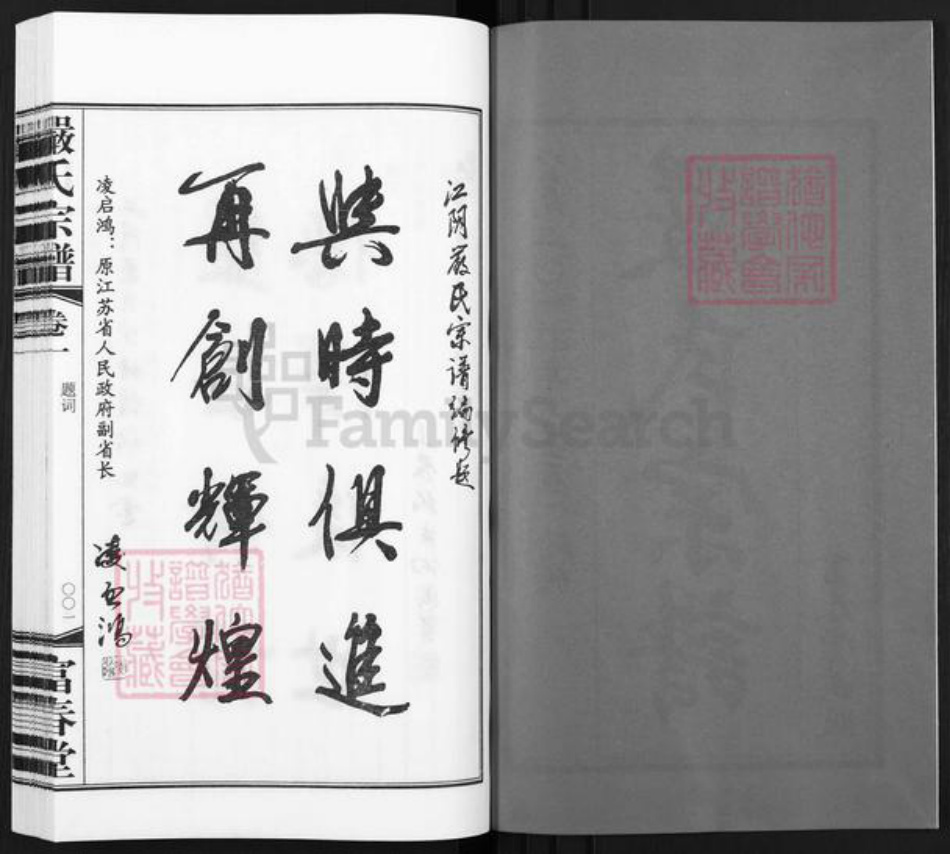 江阴严氏宗谱编修题
與時俱進
再創輝煌
凌启鸿
凌启鸿：原江苏省人民政府副省长
嚴氏宗譜
卷一
题词
〇〇一
富春堂
FamilySearch